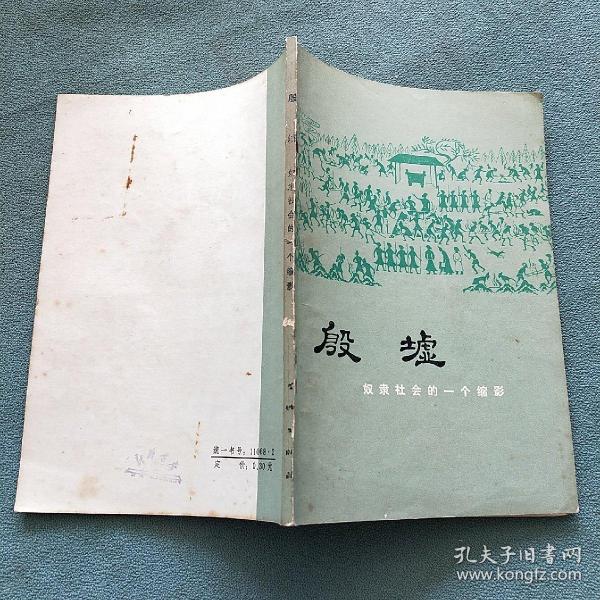 殷墟
奴隶社会的一个缩影
殷墟 奴隶社会的一个缩影
统一书号：11068·2
定价：0.30元
孔夫子旧书网
www.kongfz.com